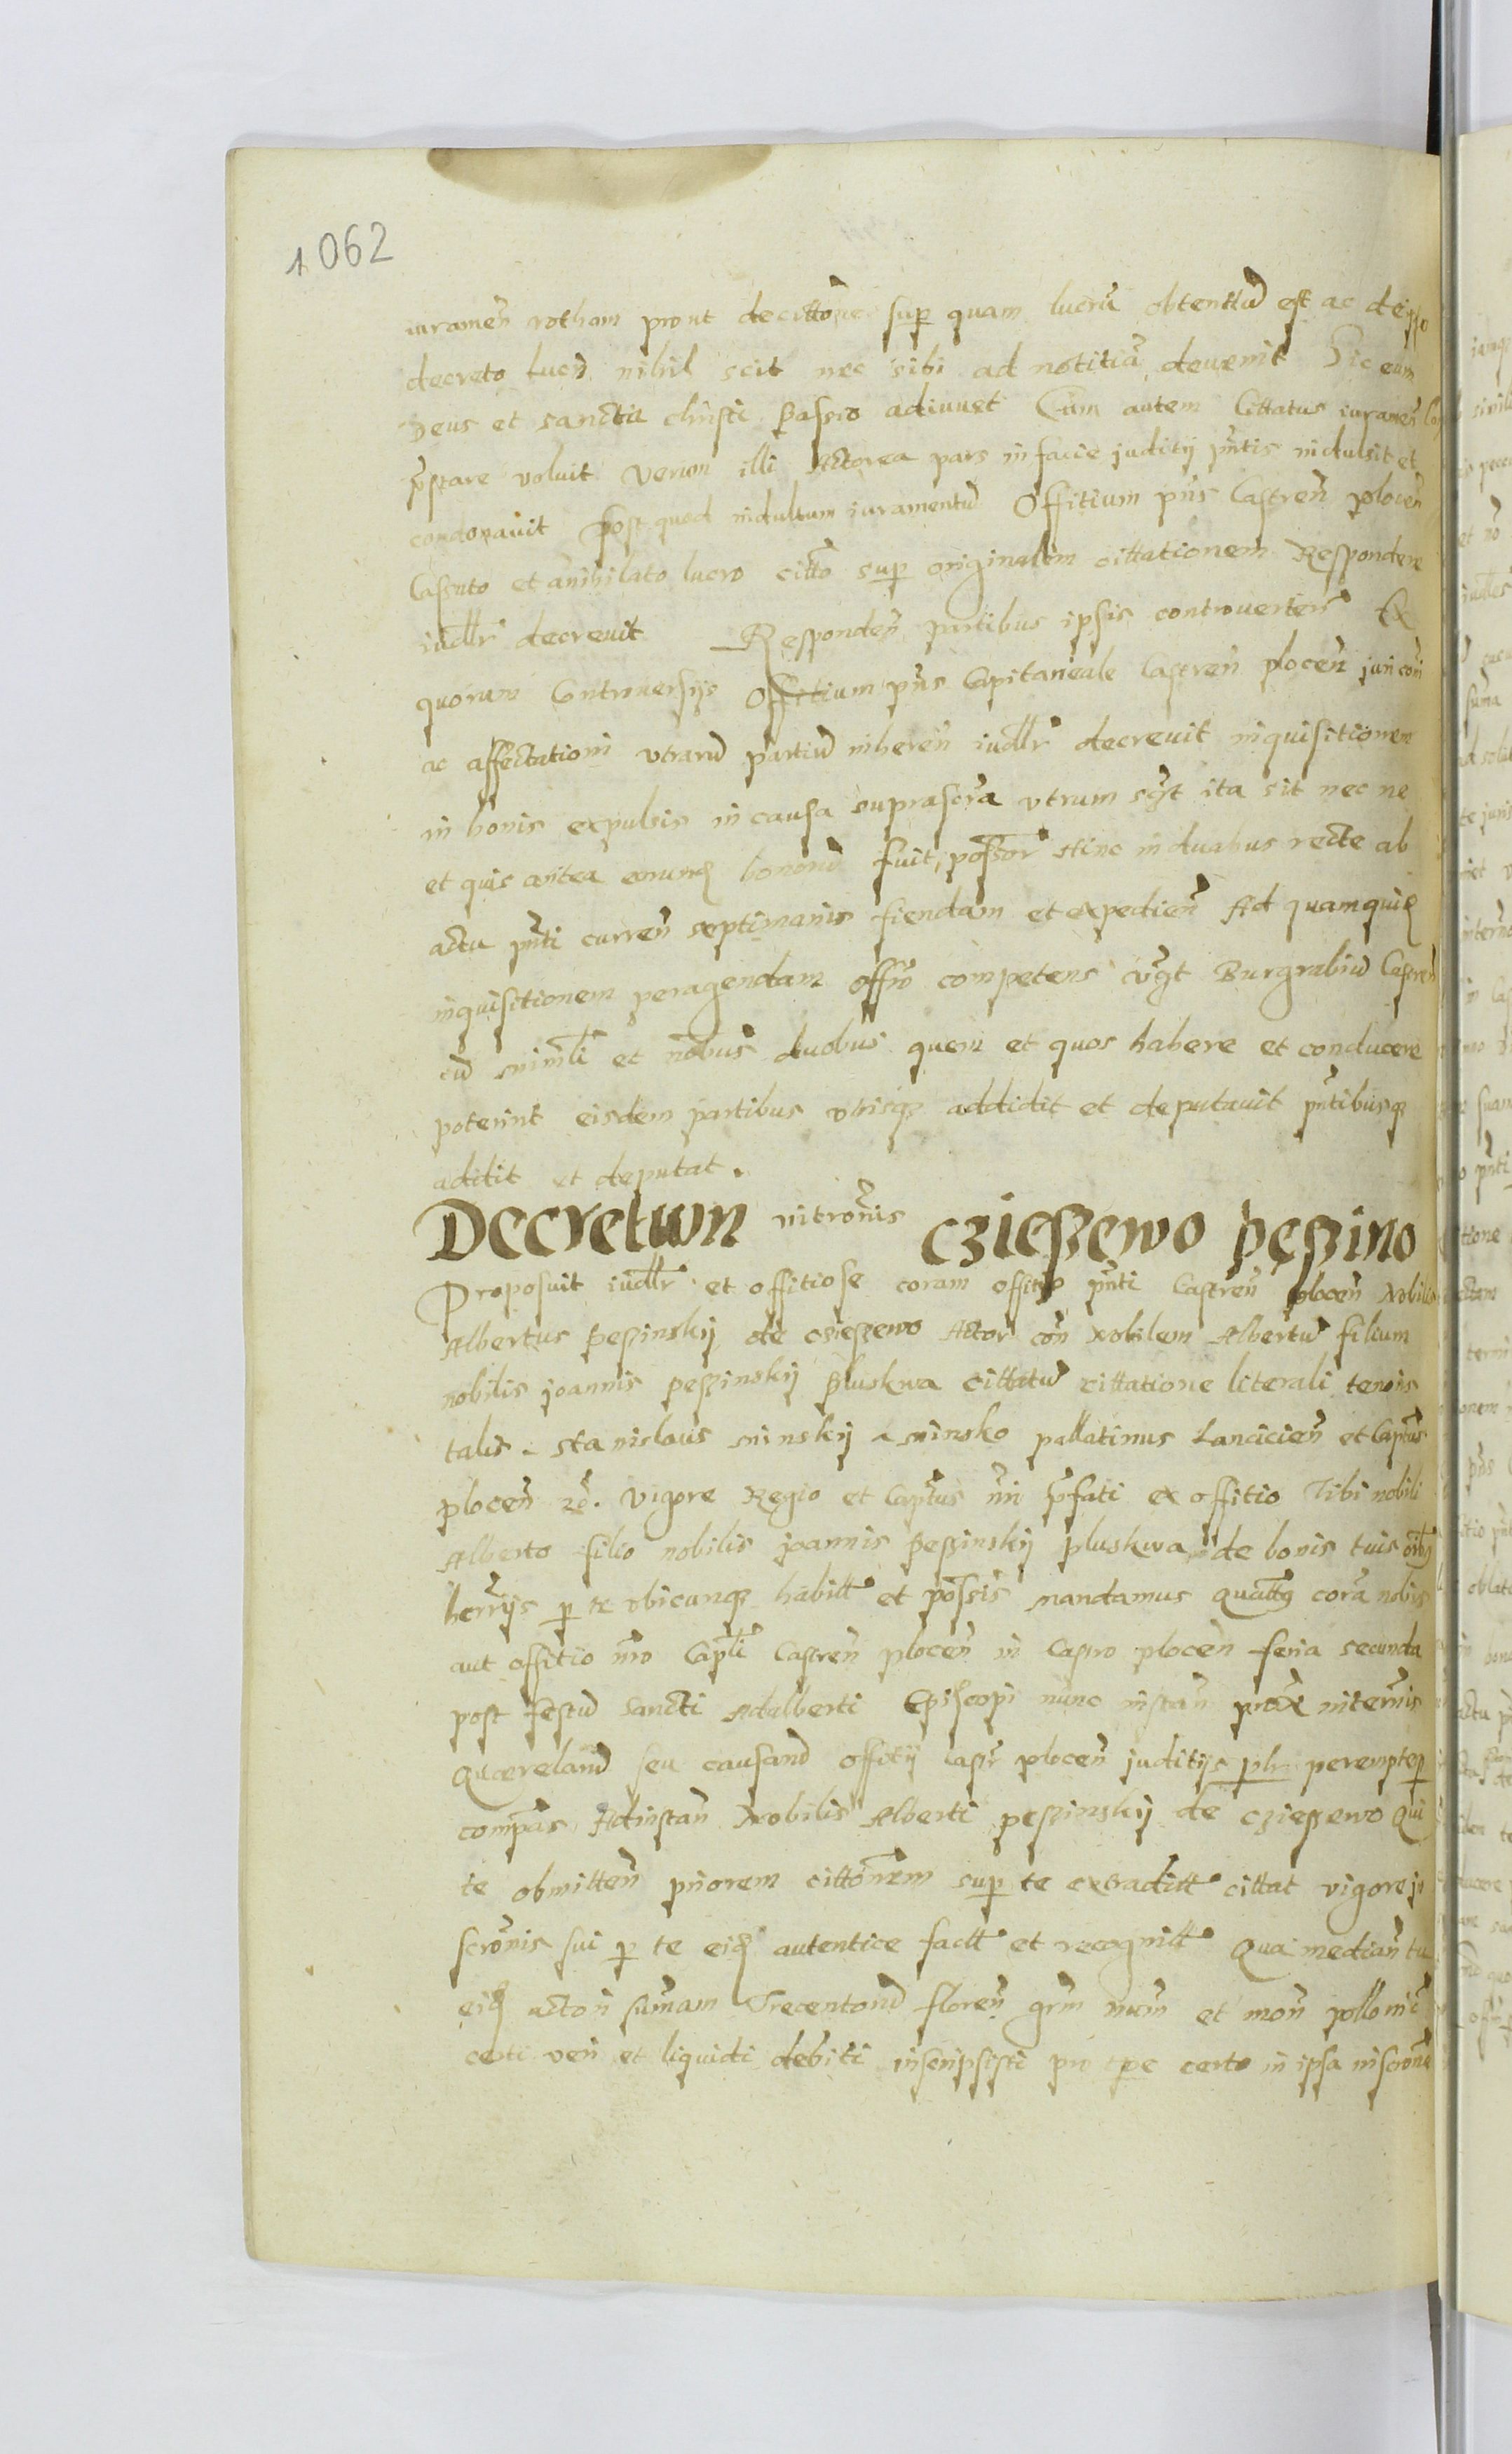 1062
iuramen̄ rotham prout de citto͞ne sup quam lucrū obtentū est ac de ipso
decreto lucri nihil scit nec sibi ad notitiā devenit Sic eum
Deus et sancta christi Passio adiuvet Cum autem Cittatus iuramen̄
p̄stare voluit Verum illi Actorea pars in facie juditij pn̄tis indulsit et
condonavit Post quod indultum iuramentū Offitium pn̄s Castren̄ plocen̄
Cassato et anihilato lucro citto sup originalem cittationem Respondere
iudlr decrevit Responden̄ partibus ipsis controverten̄ Ex
quorum Controversijs Offitium pn̄s Capitaneale Castren̄ plocen̄ juri com̄i
ac affectationi utrarū partiū inheren̄ iudlr decrevit inquisitionem
in bonis expulsis in causa suprascr̄a utrum sc̄zt ita sit nec ne
et quis antea eorund bonorū fuit possor Hinc in duabus recte ab
actu pn̄ti curren̄ septimanis fiendam et expedien̄ Ad quamquid
inquisitionem peragendam offm̄ competens vz̄t Burgrabiū Castren̄
cū minrli et nobus duobus quem et quos habere et conducere
poterint eisdem partibus utrisq addidit et deputavit pn̄tibusq
addit et deputat.
Decretum intro͞nis Czieszewo peszino
Proposuit iudlr et offitiose coram offitio pn̄ti Castren̄ plocen̄ Nobilis
Albertus Peszinskij de czieszewo Actor con̄ Nobilem Albertū filium
nobilis joannis peszinskij Pluskwa cittatū cittatione literali tenoris
talis. Stanislaus minskij a minsko pallatinus Lancicien̄ et Captn̄s
plocen̄ zc̄. Vigore Regio et Captn̄s n̄ri p̄fati ex offitio Tibi nobili
Alberto filio nobilis joannis Peszinskij pluskwa de bonis tuis oībq
herrijs p te ubicunq habitt et possis mandamus Quattq corā nobis
aut offitio nr̄o Capli Castren̄ plocen̄ in Castro plocen̄ feria secunda
post festū Sancti Adalberti Episcopi nunc instan̄ prox̄ interm̄is
Querelarū seu causarū offitij castr̄ plocen̄ juditijs plr peremptep
compas Ad instan̄ Nobilis Alberti peszinskij de czieszewo Qui
te obmitten̄ priorem citto͞nem sup te extraditt cittat vigore
scro͞nis sui p te eid autentice factt et recognitt Qua median̄ tu
eid actori sūmam Trecentorū floren̄ grm̄ num̄ et mon̄ polloni͞c
certi veri et liquidi debiti inscripsisti pro tpe certo in ipsa inscro͞ne